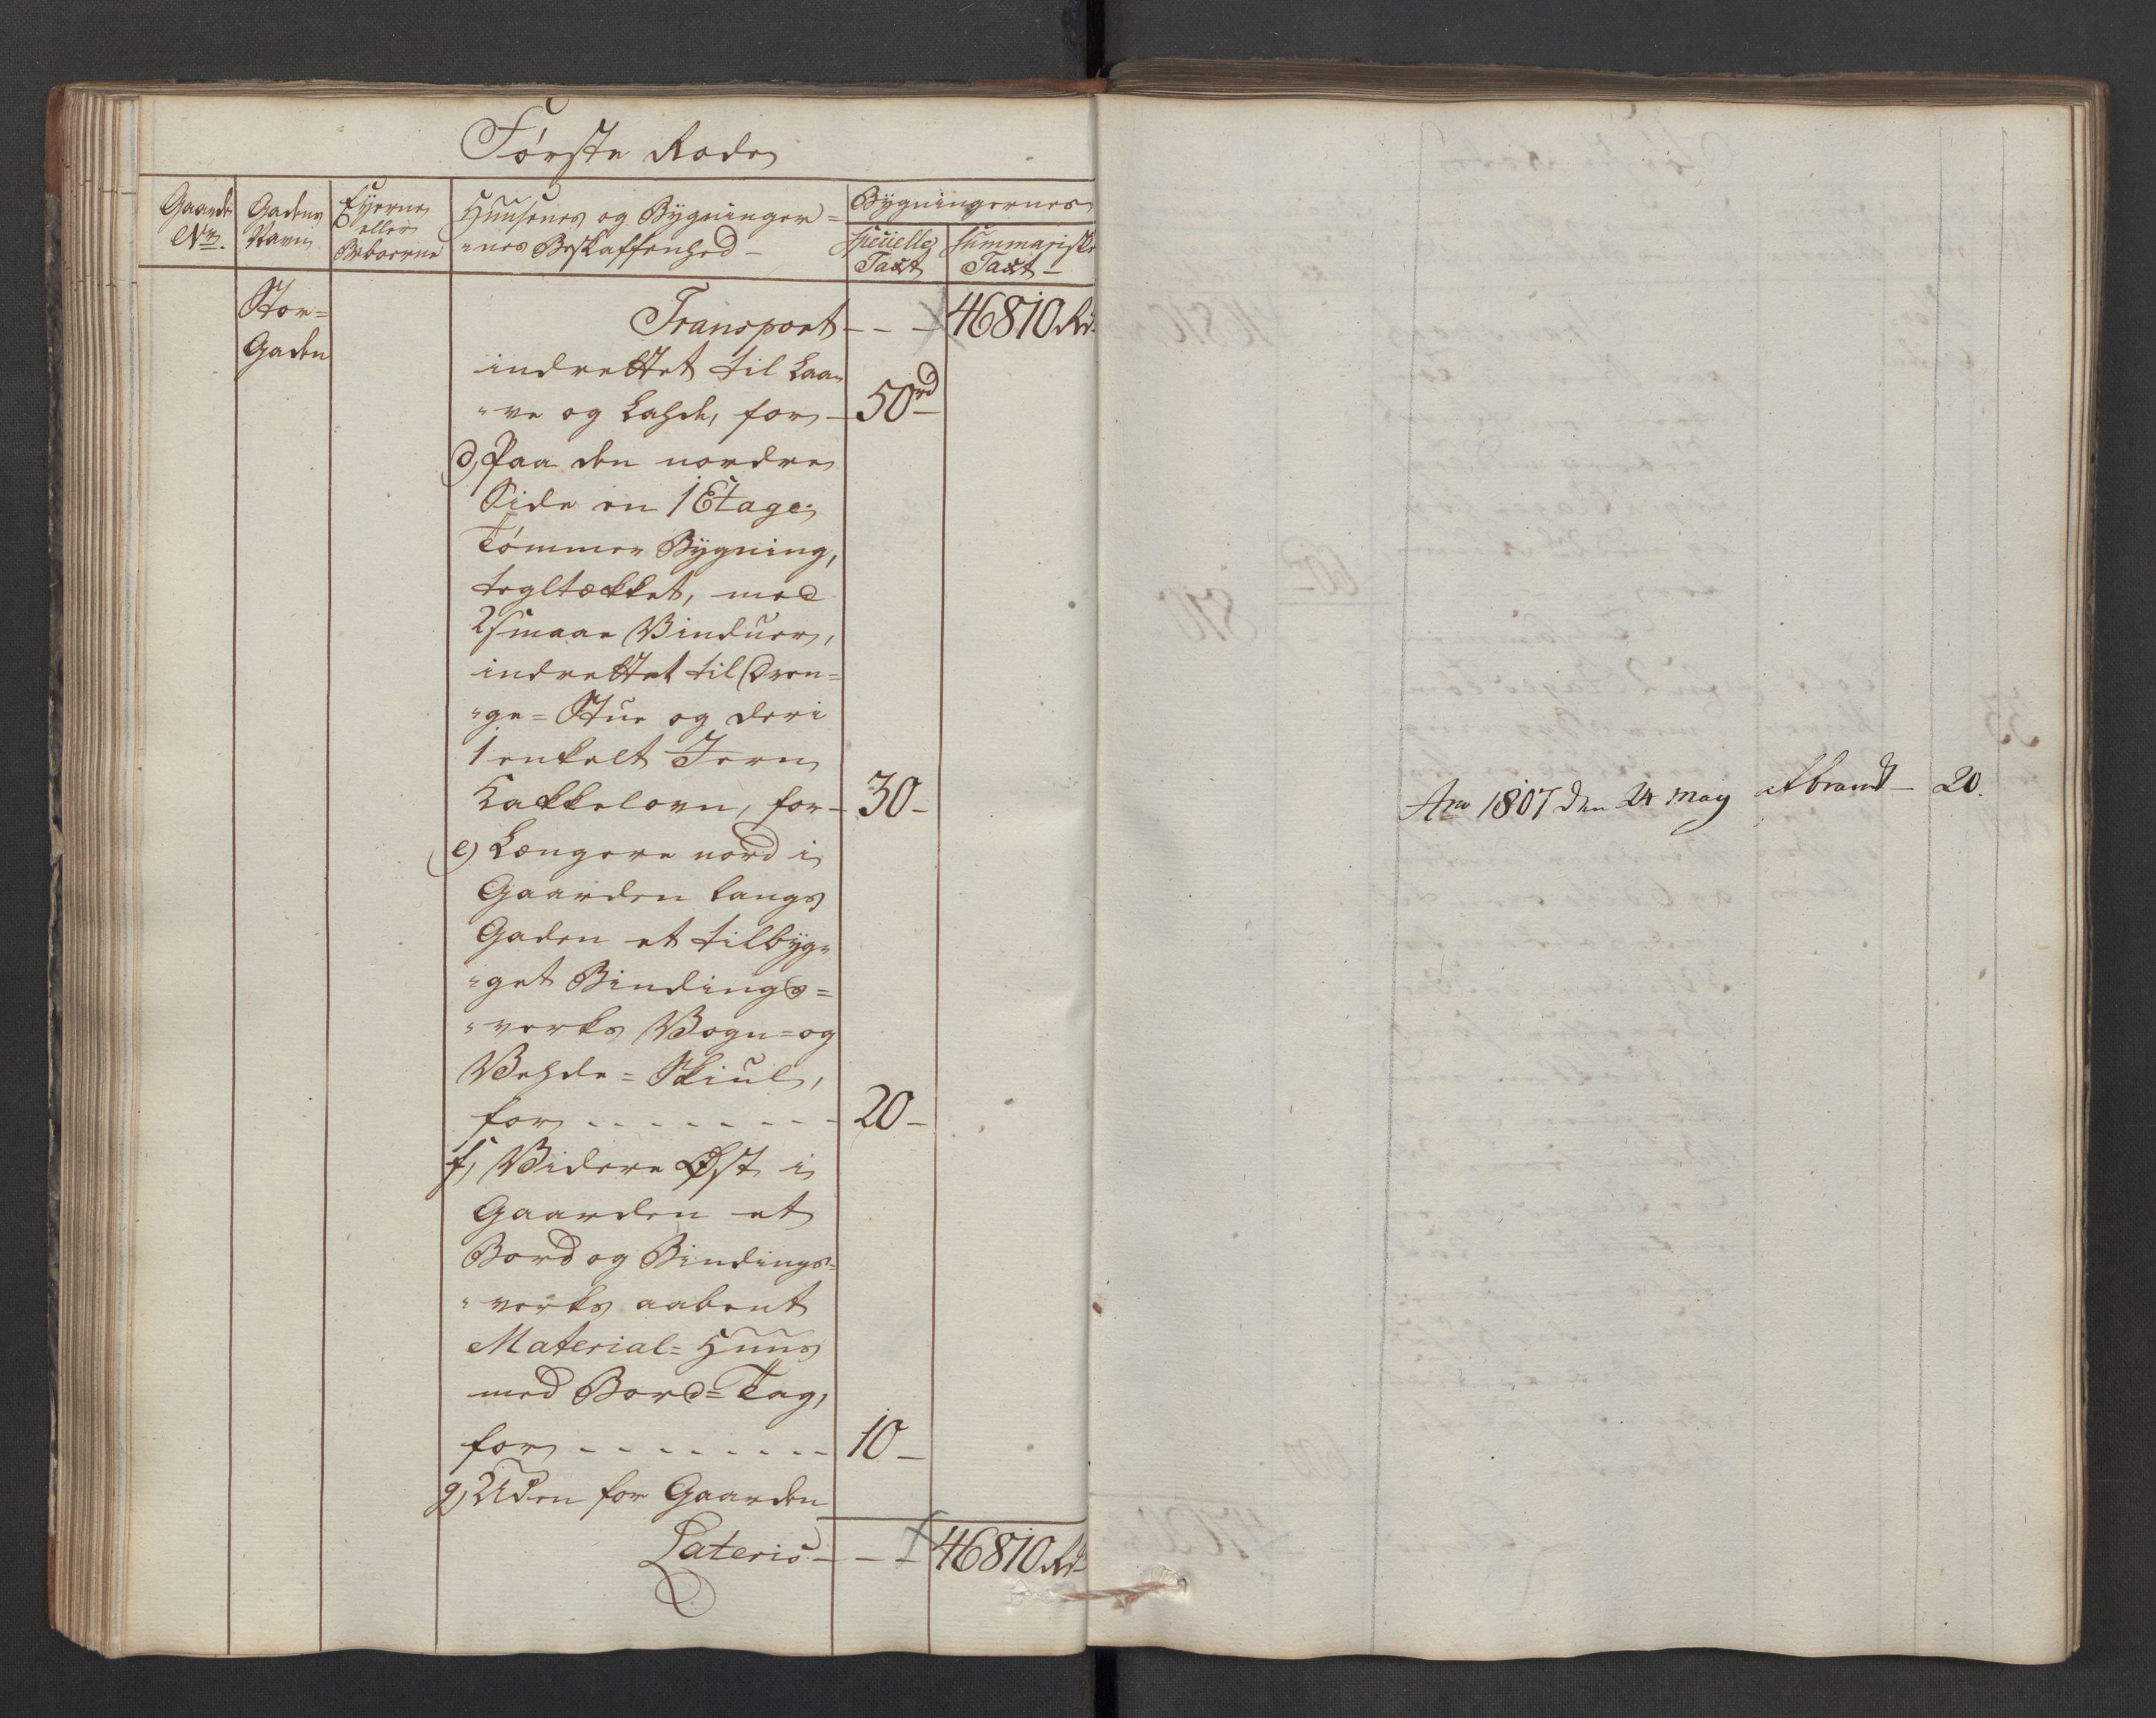 Første Rode
Gaards No. | Gadens Navn | Eyerne eller Beboerne | Huusenes og Bygninger= =nes Beskaffenhed – | Bygningernes
specielle Taxt | summariske Taxt –
Stor=
Gaden
Transport - - - 46810 Rd
indrettet til Laa=
=ve og Lahde, for – 50 rd
d) Paa den nordre
Side en 1 Etages
Tømmer Bygning,
tegltækket, med
2 smaae Vinduer,
indrettet til Dren=
=ge=Stue og deri
1 enkelt Jern
Kakkelovn, for – 30 –
e) Længere nord i
Gaarden langs
Gaden et tilbyg=
=get Bindings=
=verks Vogn= og
Vehde=Skiul,
for - - - - - - - - 20 –
f) Videre Øst i
Gaarden et
Bord og Bindings=
=verks aabent
Material=Huus
med Bord=Tag,
for - - - - - - - - 10 –
g) Uden for Gaarden
Lateris – - - 46810 Rd
Ano 1807 den 24 May afbrandt – 20.